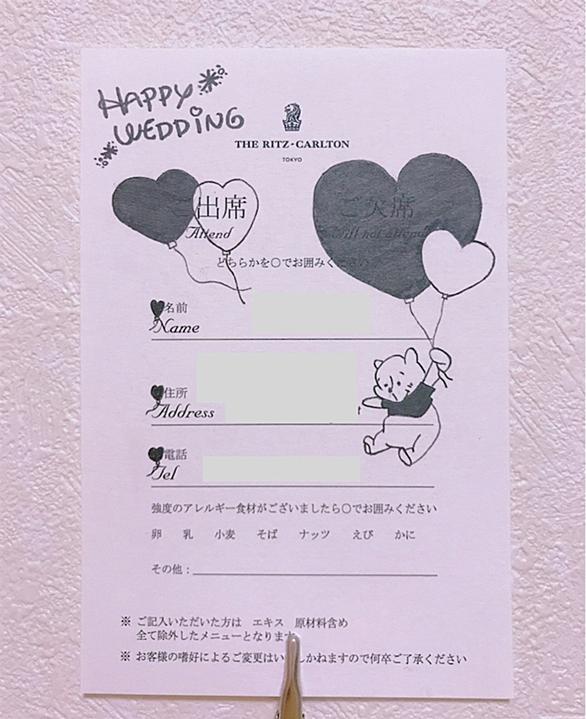 HAPPY
WEDDING
THE RITZ-CARLTON
TOKYO
ご出席 ご欠席
Attend Will not attend
どちらかを○でお囲みください
お名前
Name
ご住所
Address
お電話
Tel
強度のアレルギー食材がございましたら○でお囲みください
卵 乳 小麦 そば ナッツ えび かに
その他:
※ ご記入いただいた方は エキス 原材料含め
全て除外したメニューとなります
※ お客様の嗜好によるご変更はいたしかねますので何卒ご了承ください